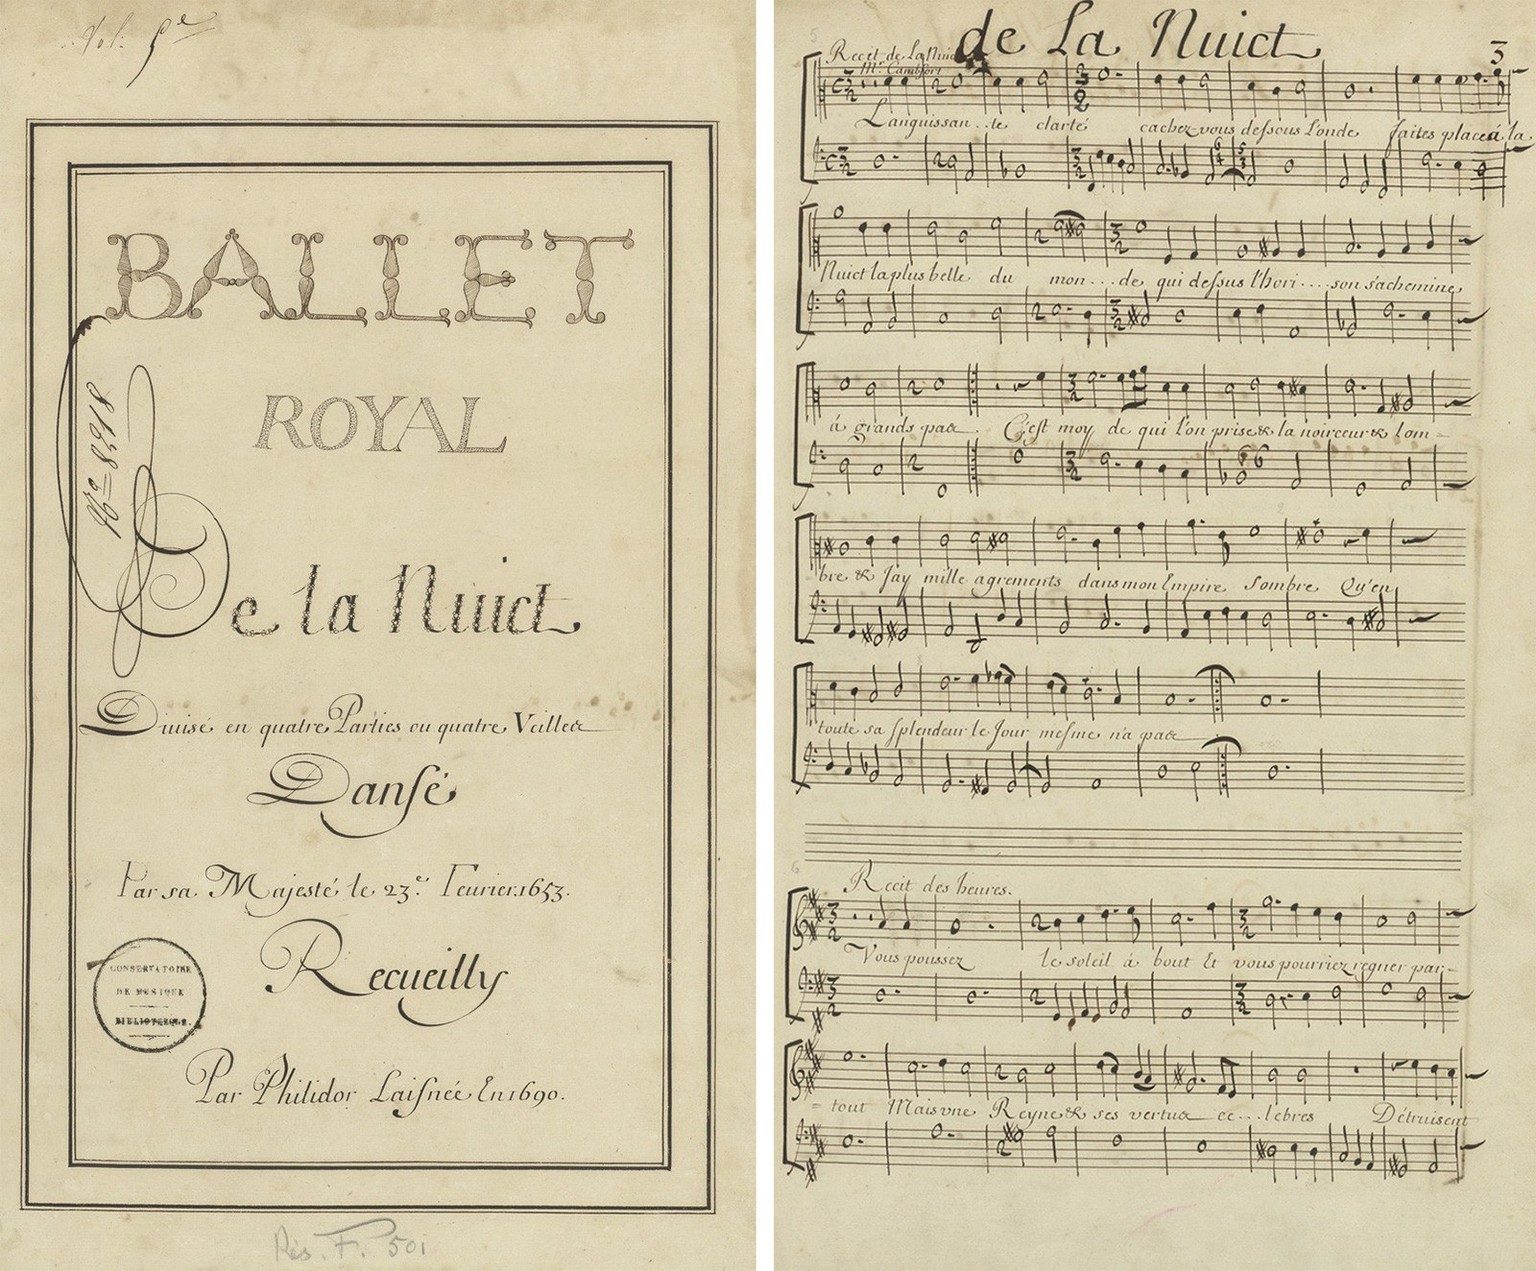 Vol. 5e
BALLET
ROYAL
De la Nuict
Diuisé en quatre Parties ou quatre Veilles
Dansé
Par sa Majesté le 23e. Feurier.1653.
Recueilly
Par Philidor Laisnée En 1690.
CONSERVATOIRE
DE MUSIQUE
BIBLIOTHEQUE.
Rés. F. 501
de La Nuict
3
Recit de La Nuict
Mr. Cambfort
Languissan..te clarté cachez-vous dessous l'onde faites place á la
Nuict la plus belle du mon...de qui dessus l'hori....son s'achemine
á grands pas C'est moy de qui l'on prise & la noirceur & l'om-
bre & J'ay mille agrements dans mon Empire sombre Qu'en
toute sa splendeur le Jour mesme n'a pas
Recit des heures.
Vous poussez le soleil á bout Et vous pourriez regner par-
=tout Mais vne Reyne & ses vertus ce...lebres Détruisent